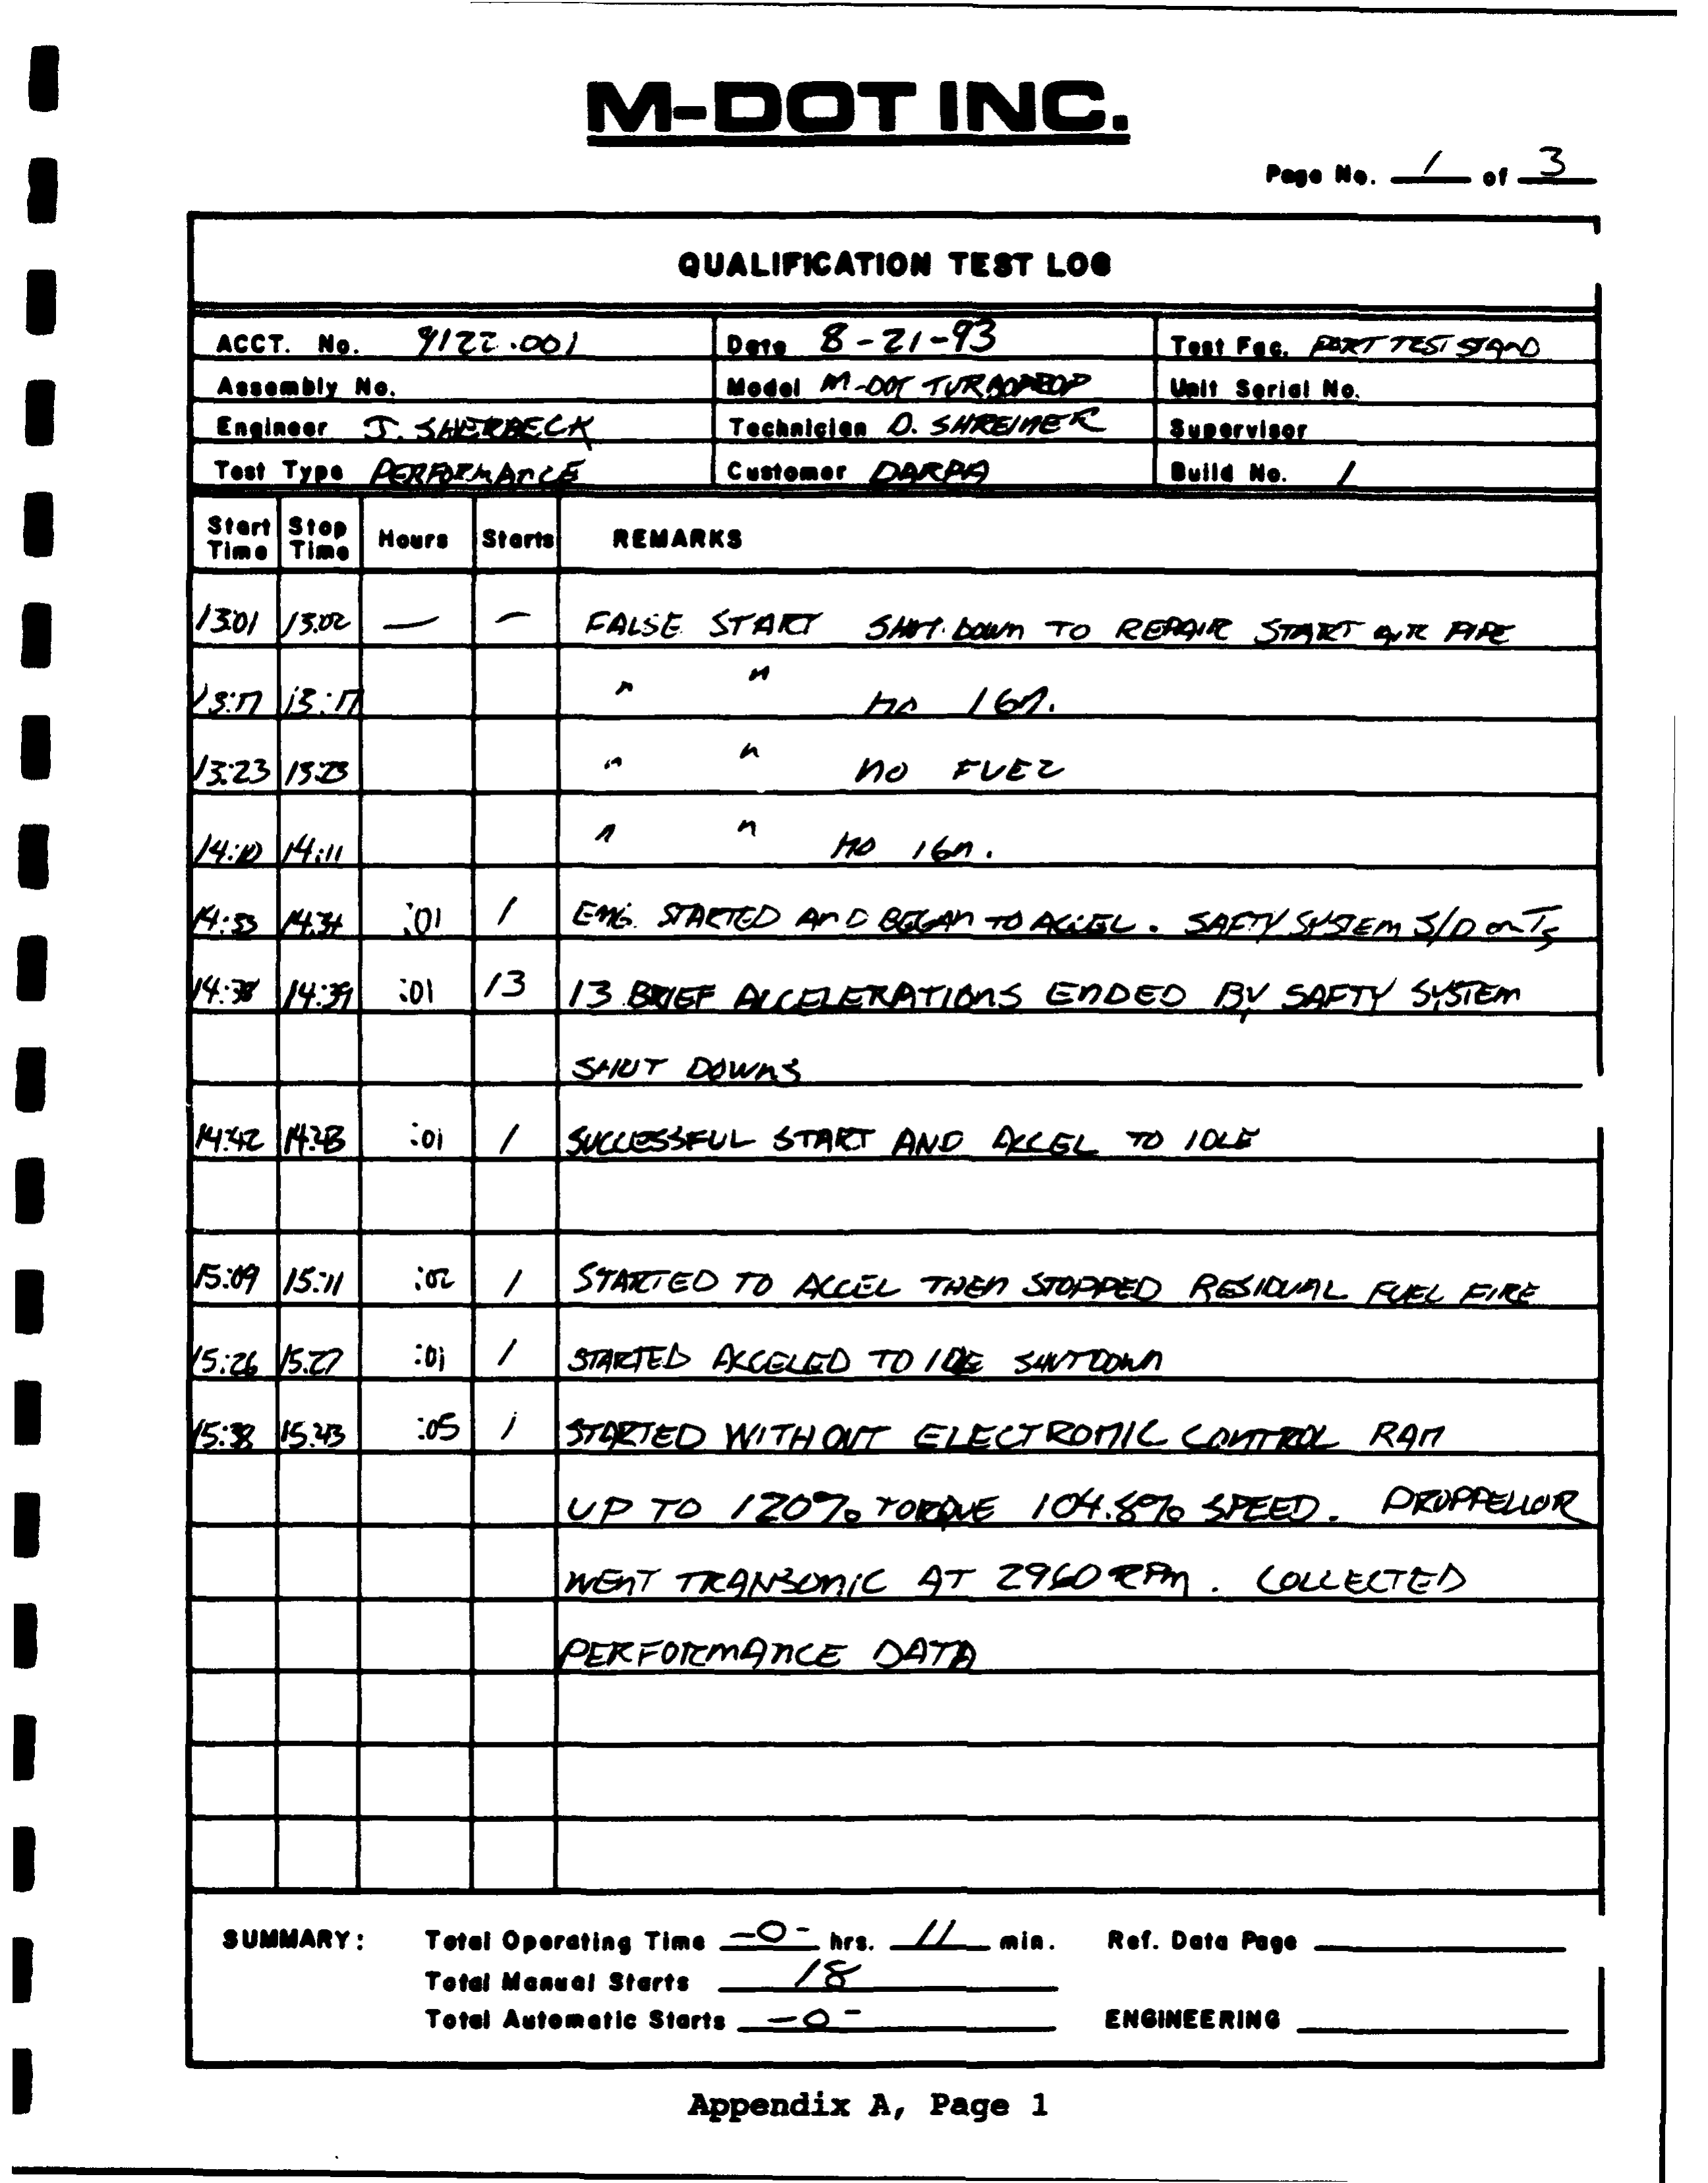 M-DOT INC.
Page No. 1 of 3
QUALIFICATION TEST LOG
ACCT. No. 9122.001 Date 8-21-93 Test Fac. PORT TEST STAND
Assembly No. Model M-DOT TURBOPROP Unit Serial No.
Engineer J. SHERBECK Technician D. SHREINER Supervisor
Test Type PERFORMANCE Customer DARPA Build No. 1
Start Time Stop Time Hours Starts REMARKS
13:01 13:02 — – FALSE START SHUT DOWN TO REPAIR START AIR PIPE
13:17 13:17 " " NO IGN.
13:23 13:23 " " NO FUEL
14:10 14:11 " " NO IGN.
14:33 14:34 :01 1 ENG. STARTED AND BEGAN TO ACCEL. SAFTY SYSTEM S/D on T5
14:38 14:39 :01 13 13 BRIEF ACCELERATIONS ENDED BY SAFTY SYSTEM
SHUT DOWNS
14:42 14:43 :01 1 SUCCESSFUL START AND ACCEL TO IDLE
15:09 15:11 :02 1 STARTED TO ACCEL THEN STOPPED RESIDUAL FUEL FIRE
15:26 15:27 :01 1 STARTED ACCELED TO IDLE SHUTDOWN
15:38 15:43 :05 1 STARTED WITHOUT ELECTRONIC CONTROL RAN
UP TO 120% TORQUE 104.8% SPEED. PROPPELLOR
WENT TRANSONIC AT 2960 RPM. COLLECTED
PERFORMANCE DATA
SUMMARY: Total Operating Time -0- hrs. 11 min. Ref. Data Page
Total Manual Starts 18
Total Automatic Starts -0- ENGINEERING
Appendix A, Page 1